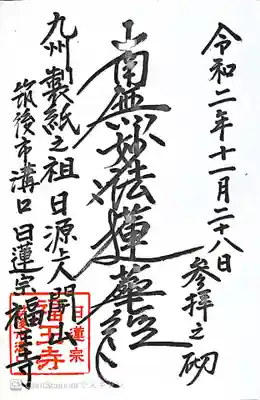 令和二年十一月二十八日
参拝之砌
南無妙法蓮華経
九州製紙之祖日源上人開山
筑後市溝口日蓮宗福王寺
日蓮宗
福王寺